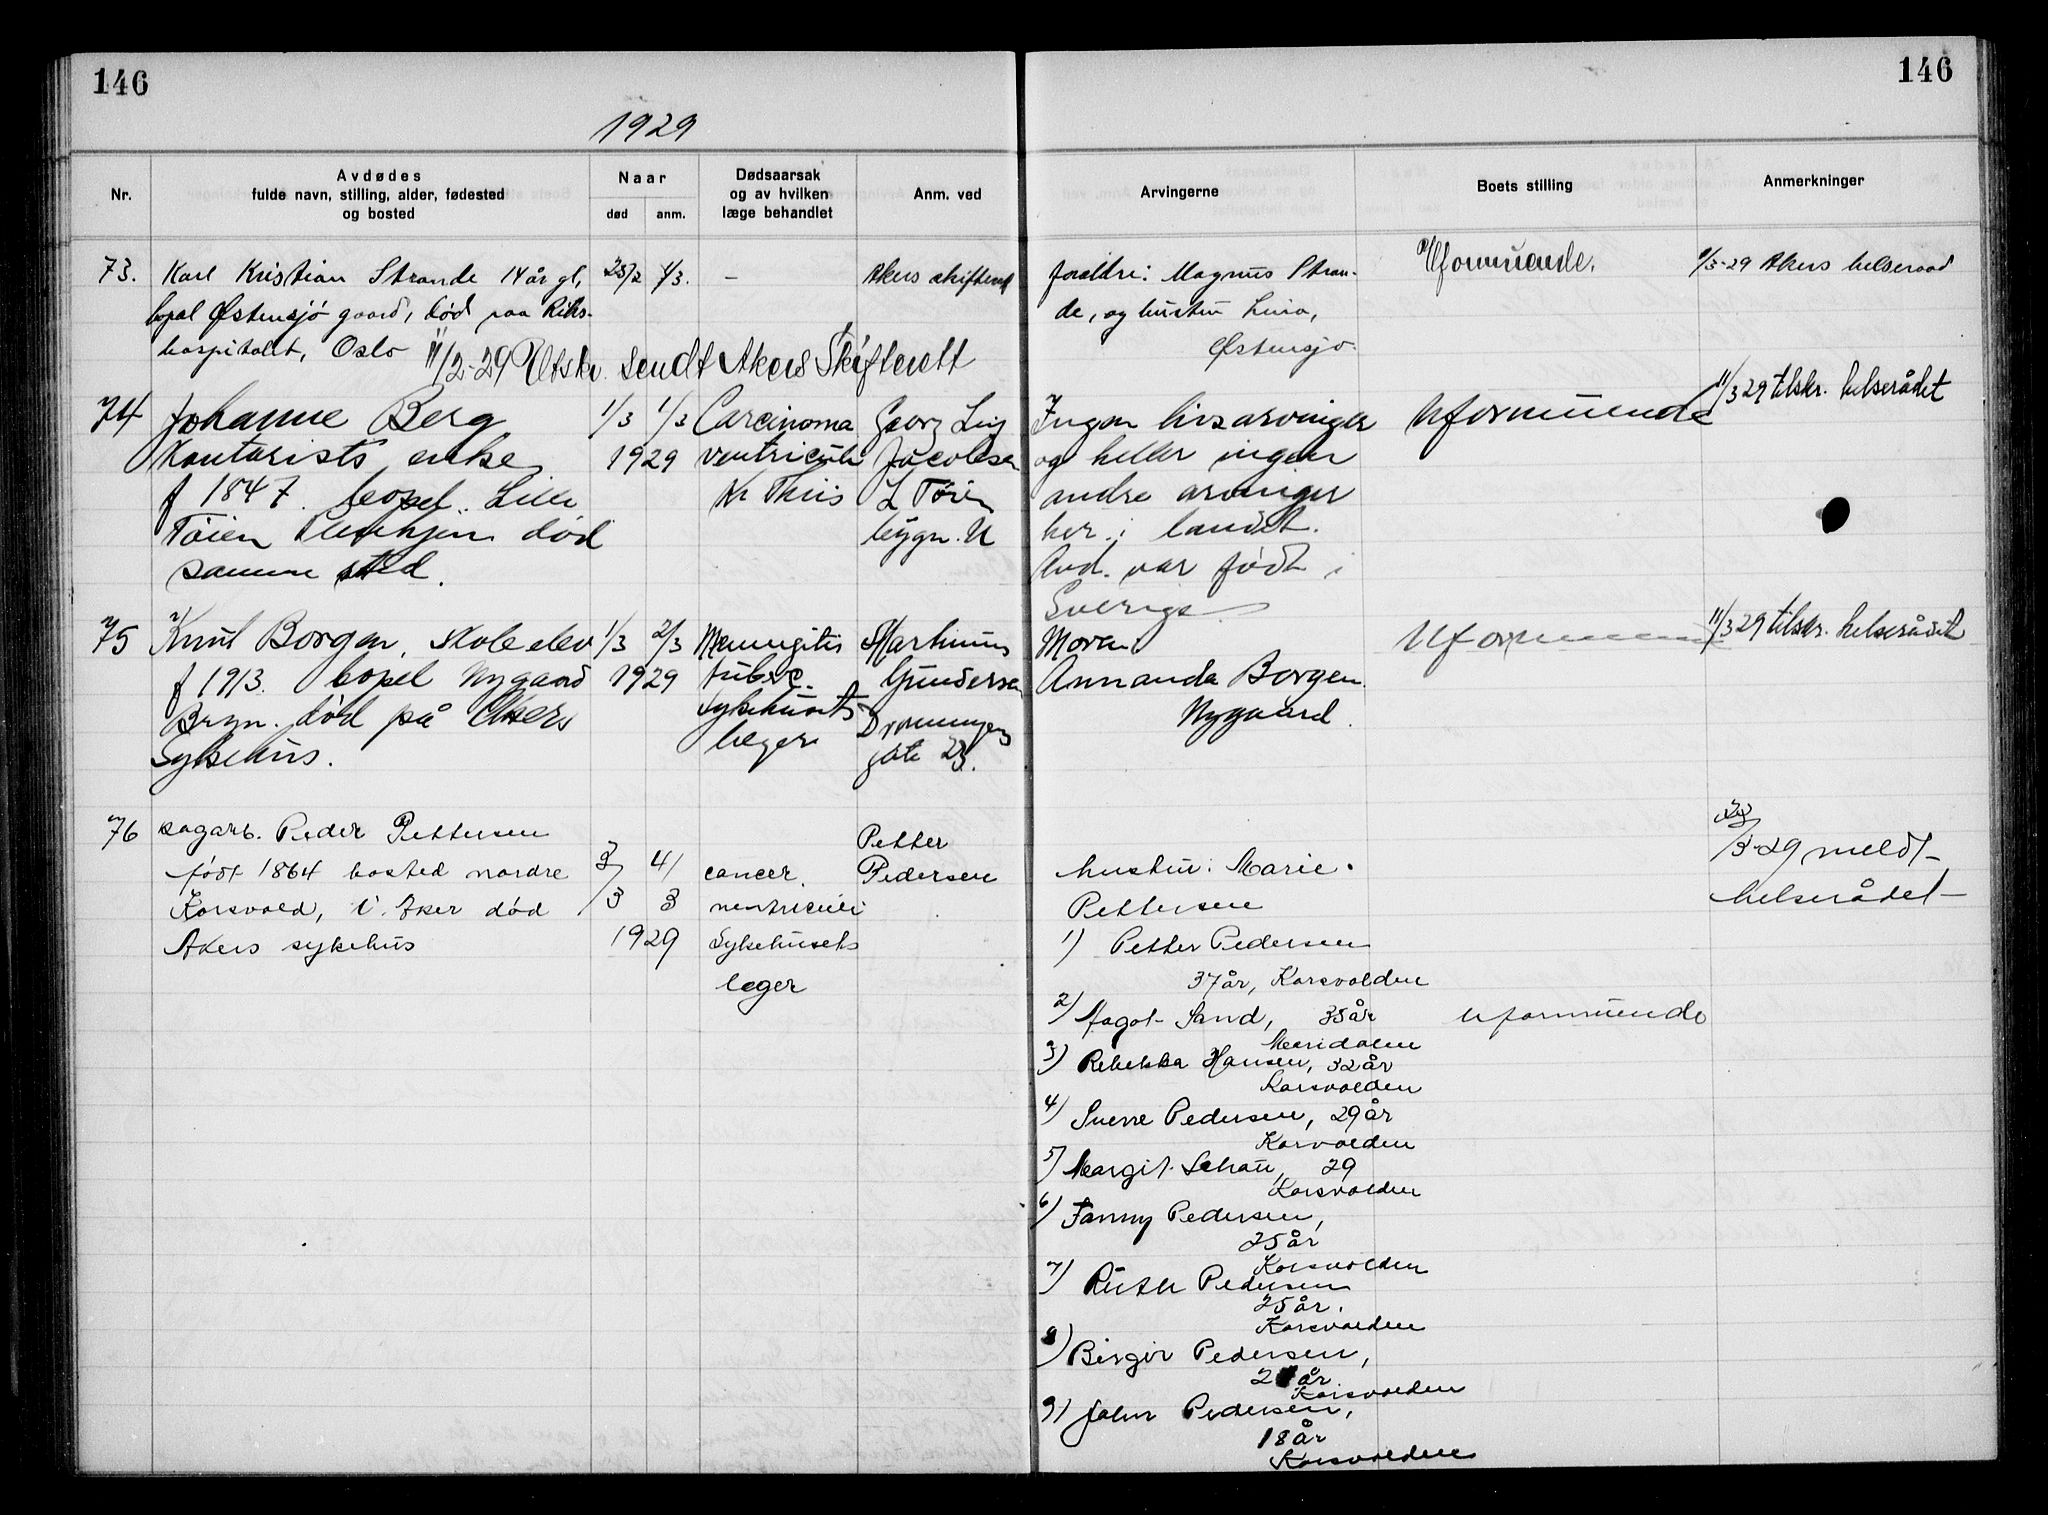 146
146
1929
Nr.
Avdødes
fulde navn, stilling, alder, fødested
og bosted
Naar
død
anm.
Dødsaarsak
og av hvilken
læge behandlet
Anm. ved
Arvingerne
Boets stilling
Anmerkninger
73.
Karl Kristian Strande 14 år gl,
bopæl Østensjø gaard, død paa Riks-
hospitalet, Oslo
1/3.
—
Akers skifterett
foreldre: Magnus Stran-
de, og hustru
Østensjø.
Uformuende.
Akers helseraad
11/2-29 Utskr. sendt Akers Skifterett
74
Johanne Berg
Kontorists enke
f 1847. bopel. Lille
Tøien død
samme sted.
1/3 1/3
1929
Carcinoma
ventriculi
Georg
Jacobsen
L Tøien
bygn. U
Ingen livsarvinger
og heller ingen
andre arvinger
her i landet.
Avd. var født i
Sverige
Uformuende
11/3 29 tilskr. helserådet
75
Knut Borgen, Skoleelev
f 1913. bopel Nygaard
Bryn. død på Akers
Sykehus.
1/3 2/3
1929
Meningitis
tuberc.
Sykehusets
læger
Martinus
Gundersen
Dronningens
gate 23.
Moren
Annanda Borgen.
Nygaard.
Uformuende
11/3 29 tilskr. helserådet
76
sagarb. Peder Pettersen
født 1864 bosted nordre
Korsvold, V. Aker død
Akers sykehus
3/3 4/3
1929
cancer
ventriculi
Sykehusets
leger
Petter
Pedersen
hustru: Marie
Pettersen
1) Petter Pedersen
37 år, Korsvolden
2) Aagot Sand, 35 år
Maridalen
3) Rebekka Hansen, 32 år
Korsvolden
4) Sverre Pedersen, 29 år
Korsvolden
5) Margit Schau, 29
Korsvolden
6) Fanny Pedersen,
25 år
Korsvolden
7) Ruth Pedersen
25 år.
Korsvolden
8) Birger Pedersen,
21 år
Korsvolden
9) John Pedersen,
18 år
Korsvolden
Uformuende
/3-29 meldt
helserådet